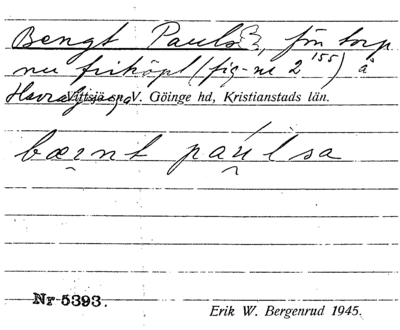 Bengt Pauls, för torp
nu friköpt (fig-nr 2 155) å
Vittsjö sn, V. Göinge hd, Kristianstads län.
bærnt paulsa
Nr 5393.
Erik W. Bergenrud 1945.